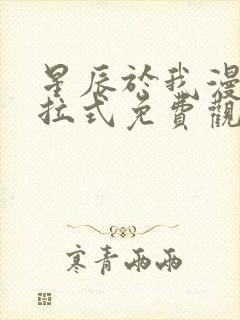 星辰於我漫
拉式免費觀
寒青雨雨